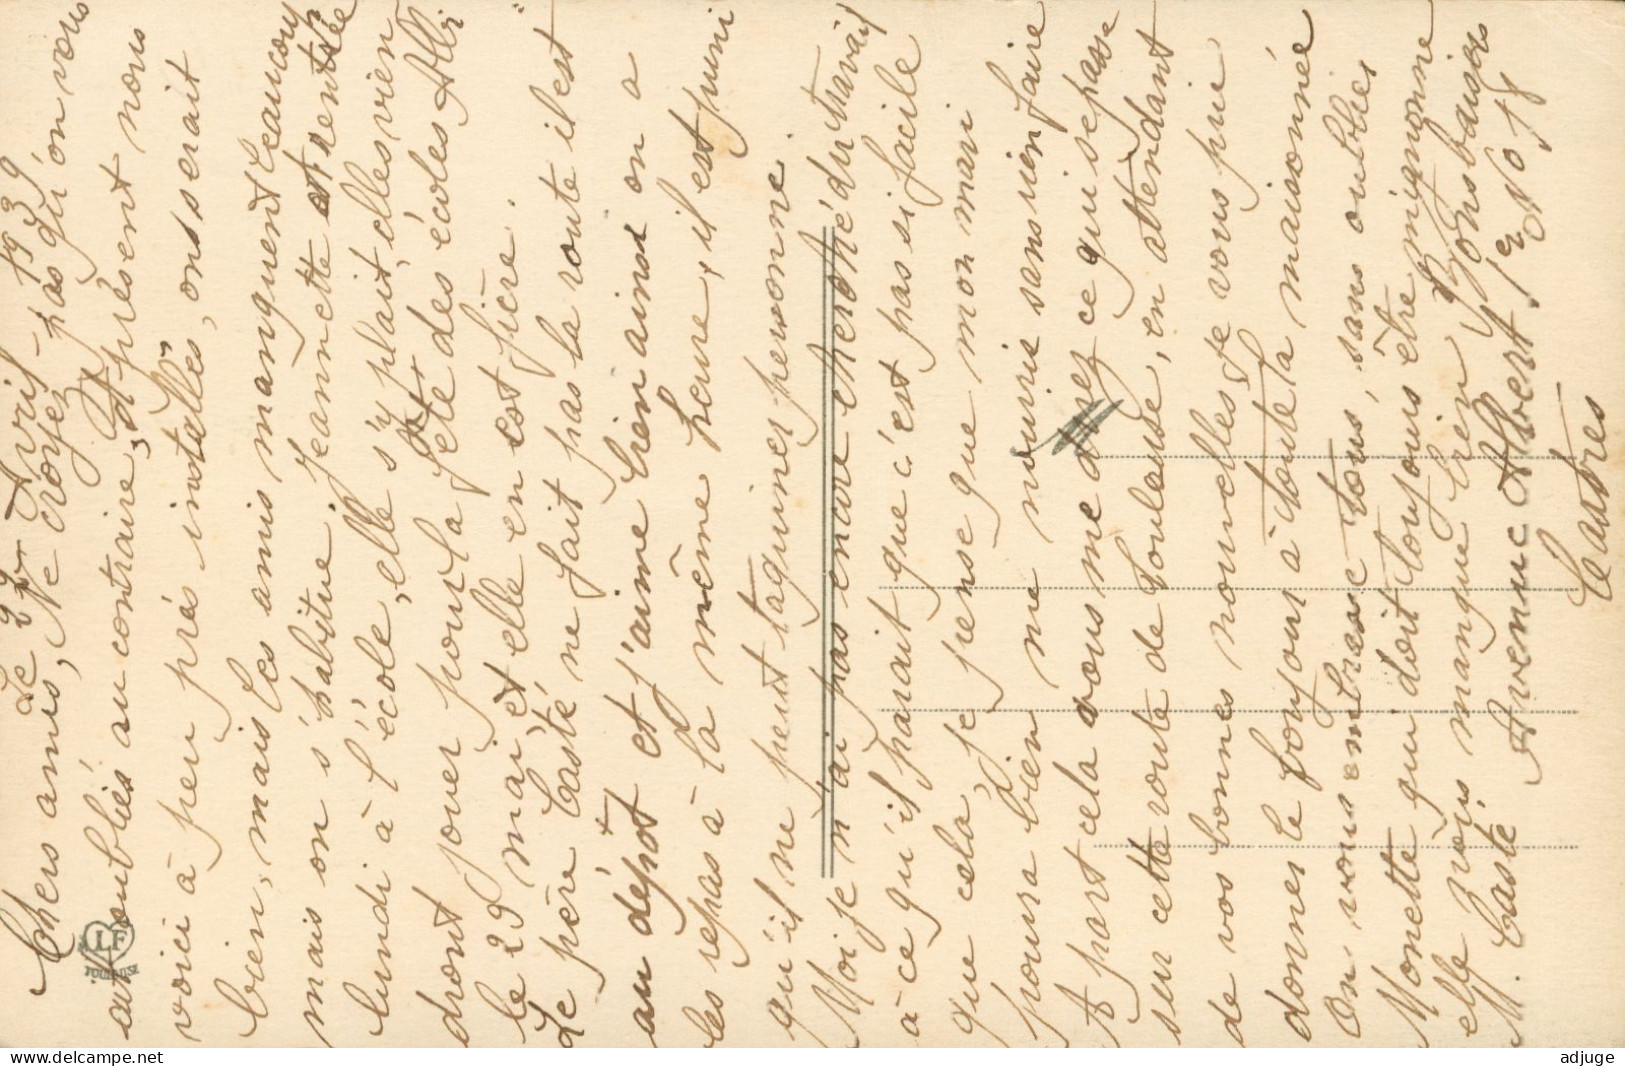 Le 22 Avril 1939
Chers amis, Ne croyez pas qu'on vous
ait oubliés au contraire, A présent nous
voici à peu près installés, ont serait
bien, mais les amis manquent beaucoup
mais on s'habitue. Jeannette est rentrée
lundi à l'école, elle s'y plait, elles vien
dront jouer pour la fête des écoles Albi
le 29 mai, et elle en est fière.
Le père Casté ne fait pas la route il est
au dépôt et j'aime bien ainsi on a
les repas à la même heure, il est puni
qu'il ne peut taquiner personne.
Moi je n'ai pas encore cherché du travail
à ce qu'il parait que c'est pas si facile
que cela, je pense que mon mari
pourra bien me nourrir sans rien faire
A part cela vous me direz ce qui se passe
sur cette route de Toulouse, en attendant
de vos bonnes nouvelles je vous prie
donner le bonjour à toute la maisonnée
On vous embrasse tous, sans oublier
Monette qui doit toujours être mignonne
elle nous manque bien Bons baisers
M. Casté Avenue Albert 1er No 18
Castres
LF
TOULOUSE
adjuge